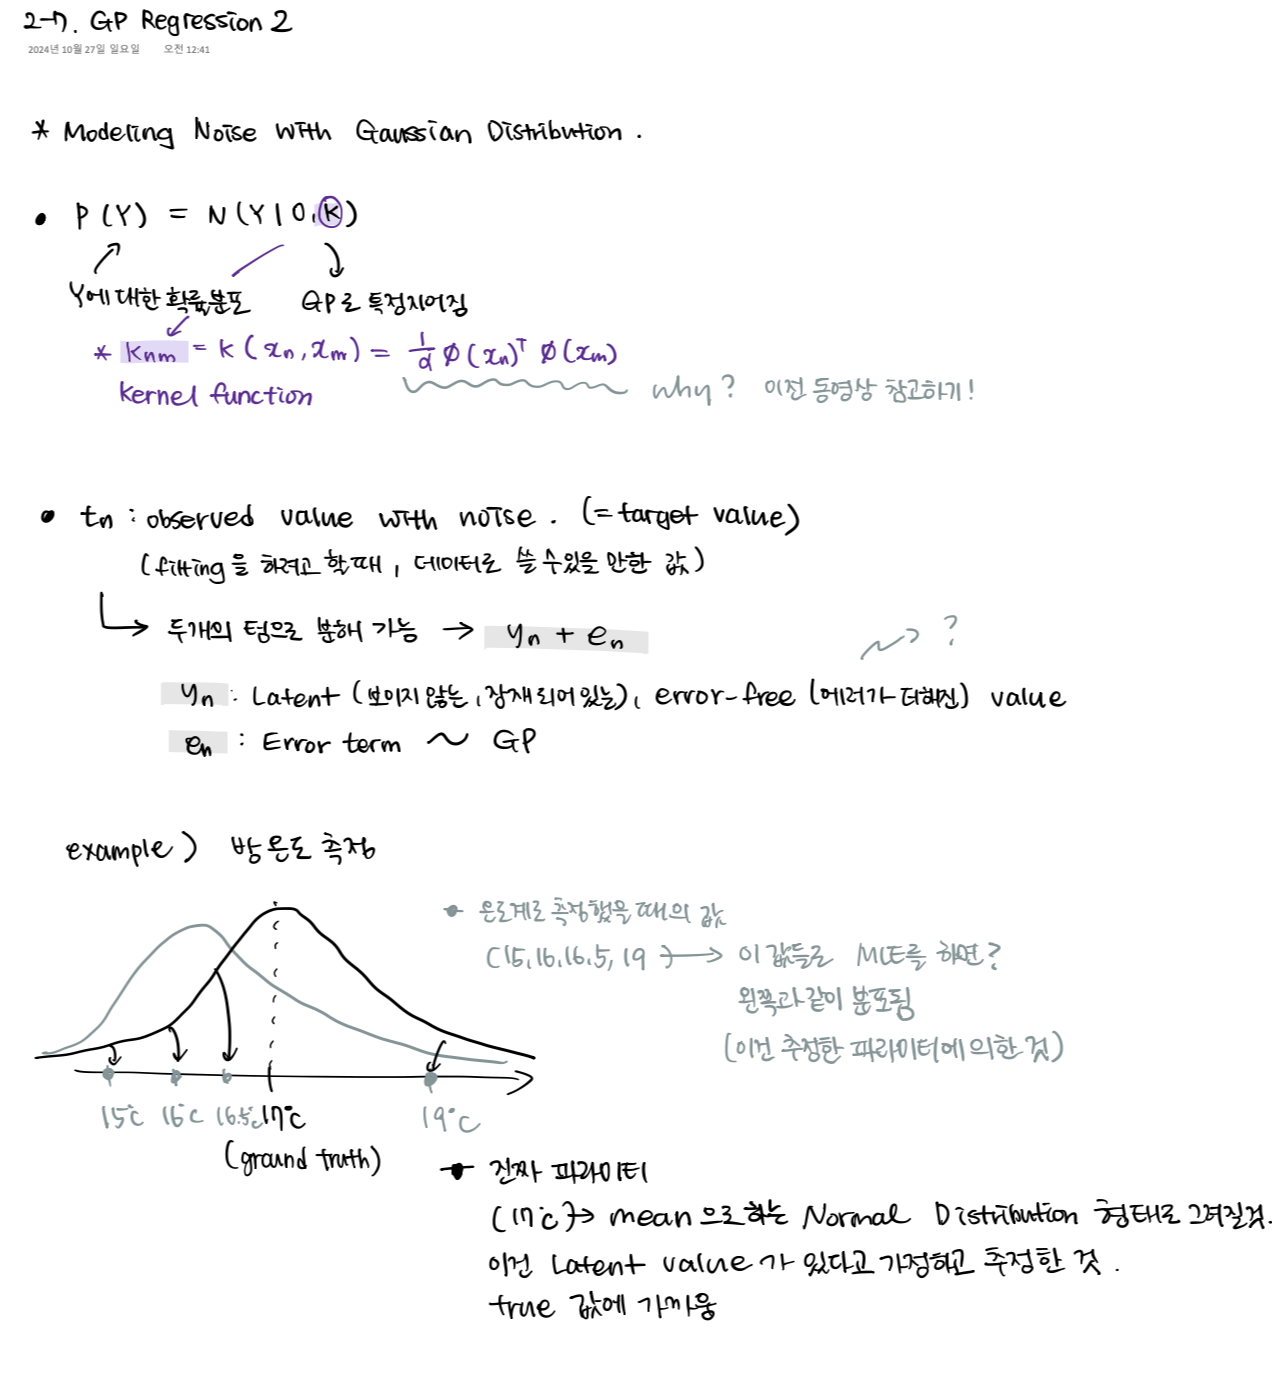 2-7. GP Regression 2
2024년 10월 27일 일요일 오전 12:41
* Modeling Noise with Gaussian Distribution.
• P(Y) = N(Y|0,K)
Y에 대한 확률분포 GP로 특정지어짐
* Knm = k(xn, xm) = 1/α ϕ(xn)ᵀ ϕ(xm)
kernel function
why? 이전 동영상 참고하기!
• tn : observed value with noise. (= target value)
(fitting을 하려고 할때, 데이터로 쓸 수 있을 만한 값)
두개의 텀으로 분해 가능 → yn + en
?
yn : Latent (보이지 않는, 잠재되어 있는), error-free (에러가 더해진) value
en : Error term ~ GP
example) 방 온도 측정
온도계로 측정했을 때의 값
(15, 16, 16.5, 19) → 이 값들로 MLE를 하면?
왼쪽과 같이 분포됨
(이건 추정한 파라미터에 의한 것)
15℃ 16℃ 16.5℃ 17℃ 19℃
(ground truth)
진짜 파라미터
(17℃) → mean으로 하는 Normal Distribution 형태로 그려질것.
이건 Latent value가 있다고 가정하고 추정한 것.
true 값에 가까움